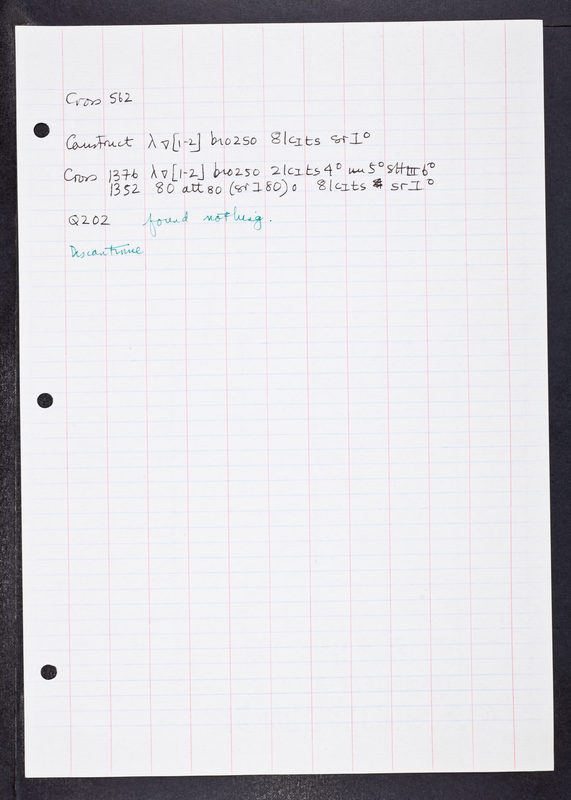 Cross 562
Construct λ ∇[1-2] bio250 81cIts srI°
Cross 1376 λ ∇[1-2] bio250 21cIts4° nu5° sHIII6°
1352 80 att80 (srI80)0 81cIts srI°
Q202 found nothing.
Discontinue